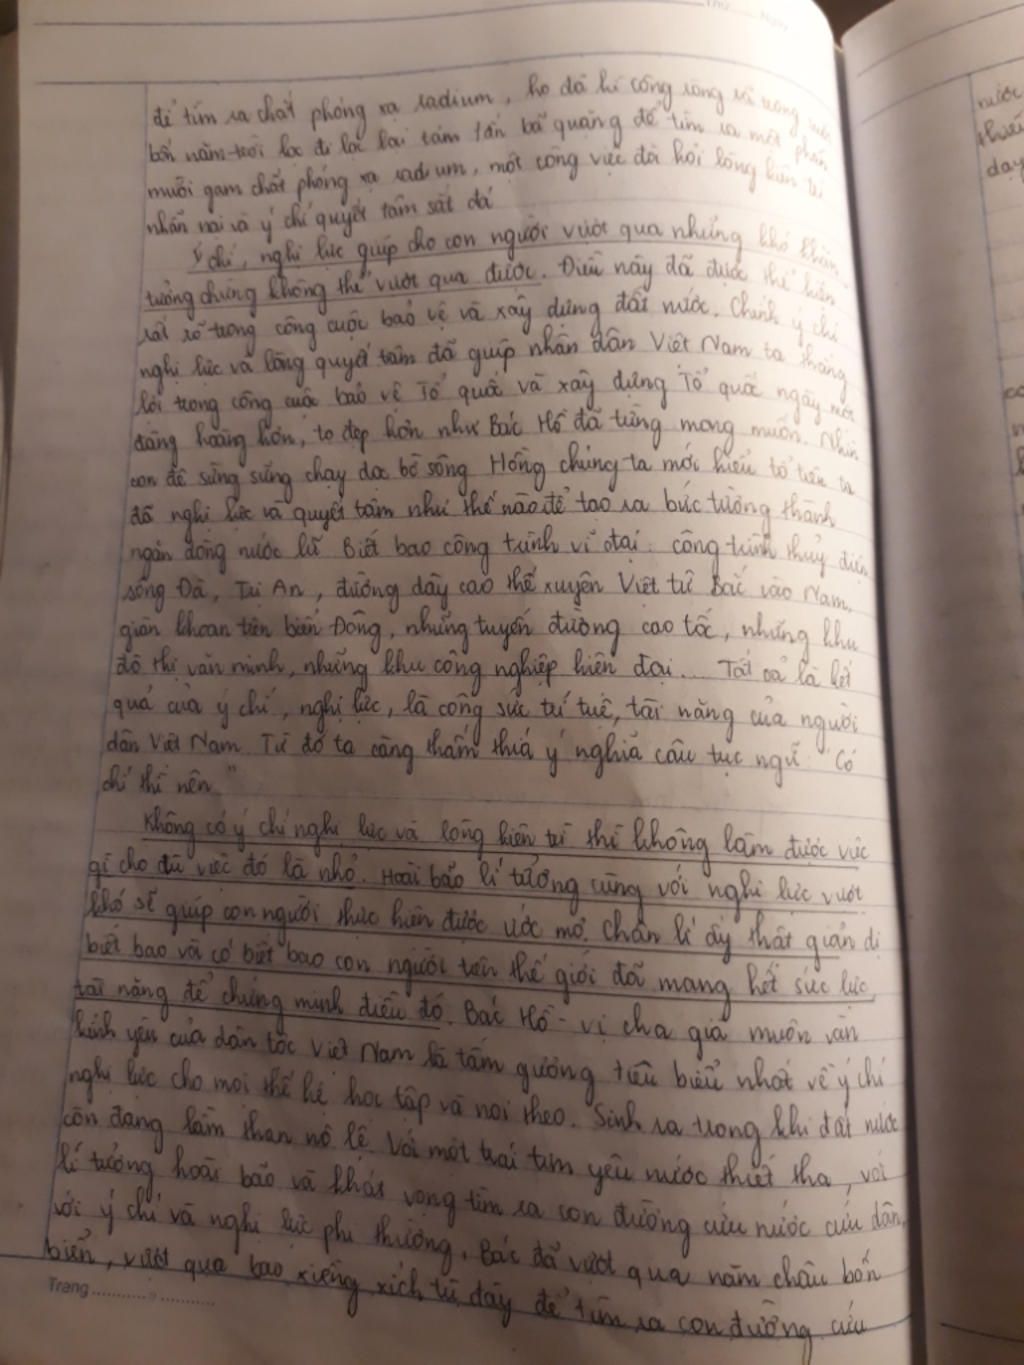 Thứ ..... Ngày
để tìm ra chất phóng xạ radium, họ đã kì công ròng rã trong suốt
bốn năm trời lọc đi lọc lại tám tấn bã quặng để tìm ra một phần
mười gam chất phóng xạ radium, một công việc đòi hỏi lòng kiên trì
nhẫn nại và ý chí quyết tâm sắt đá
Ý chí, nghị lực giúp cho con người vượt qua những khó khăn
tưởng chừng không thể vượt qua được. Điều này đã được thể hiện
rất rõ trong công cuộc bảo vệ và xây dựng đất nước. Chính ý chí
nghị lực và lòng quyết tâm đã giúp nhân dân Việt Nam ta thắng
lợi trong công cuộc bảo vệ Tổ quốc và xây dựng Tổ quốc ngày một
đàng hoàng hơn, to đẹp hơn như Bác Hồ đã từng mong muốn. Nhìn
con đê sừng sững chạy dọc bờ sông Hồng chúng ta mới hiểu tổ tiên ta
đã nghị lực và quyết tâm như thế nào để tạo ra bức tường thành
ngăn dòng nước lũ. Biết bao công trình vĩ đại: công trình thuỷ điện
sông Đà, Trị An, đường dây cao thế xuyên Việt từ Bắc vào Nam,
giàn khoan trên biển Đông, những tuyến đường cao tốc, những khu
đô thị văn minh, những khu công nghiệp hiện đại.... Tất cả là kết
quả của ý chí, nghị lực, là công sức trí tuệ, tài năng của người
dân Việt Nam. Từ đó ta càng thấm thía ý nghĩa câu tục ngữ "Có
chí thì nên."
Không có ý chí nghị lực và lòng kiên trì thì không làm được việc
gì cho dù việc đó là nhỏ. Hoài bão lí tưởng cùng với nghị lực vượt
khó sẽ giúp con người thực hiện được ước mơ. Chân lí ấy thật giản dị
biết bao và có biết bao con người trên thế giới đã mang hết sức lực,
tài năng để chứng minh điều đó. Bác Hồ - vị cha già muôn vàn
kính yêu của dân tộc Việt Nam là tấm gương tiêu biểu nhất về ý chí
nghị lực cho mọi thế hệ học tập và noi theo. Sinh ra trong khi đất nước
còn đang lầm than nô lệ. Với một trái tim yêu nước thiết tha, với
lí tưởng hoài bão và khát vọng tìm ra con đường cứu nước cứu dân,
với ý chí và nghị lực phi thường, Bác đã vượt qua năm châu bốn
biển, vượt qua bao xiềng xích tù đày để tìm ra con đường cứu
Trang
nước